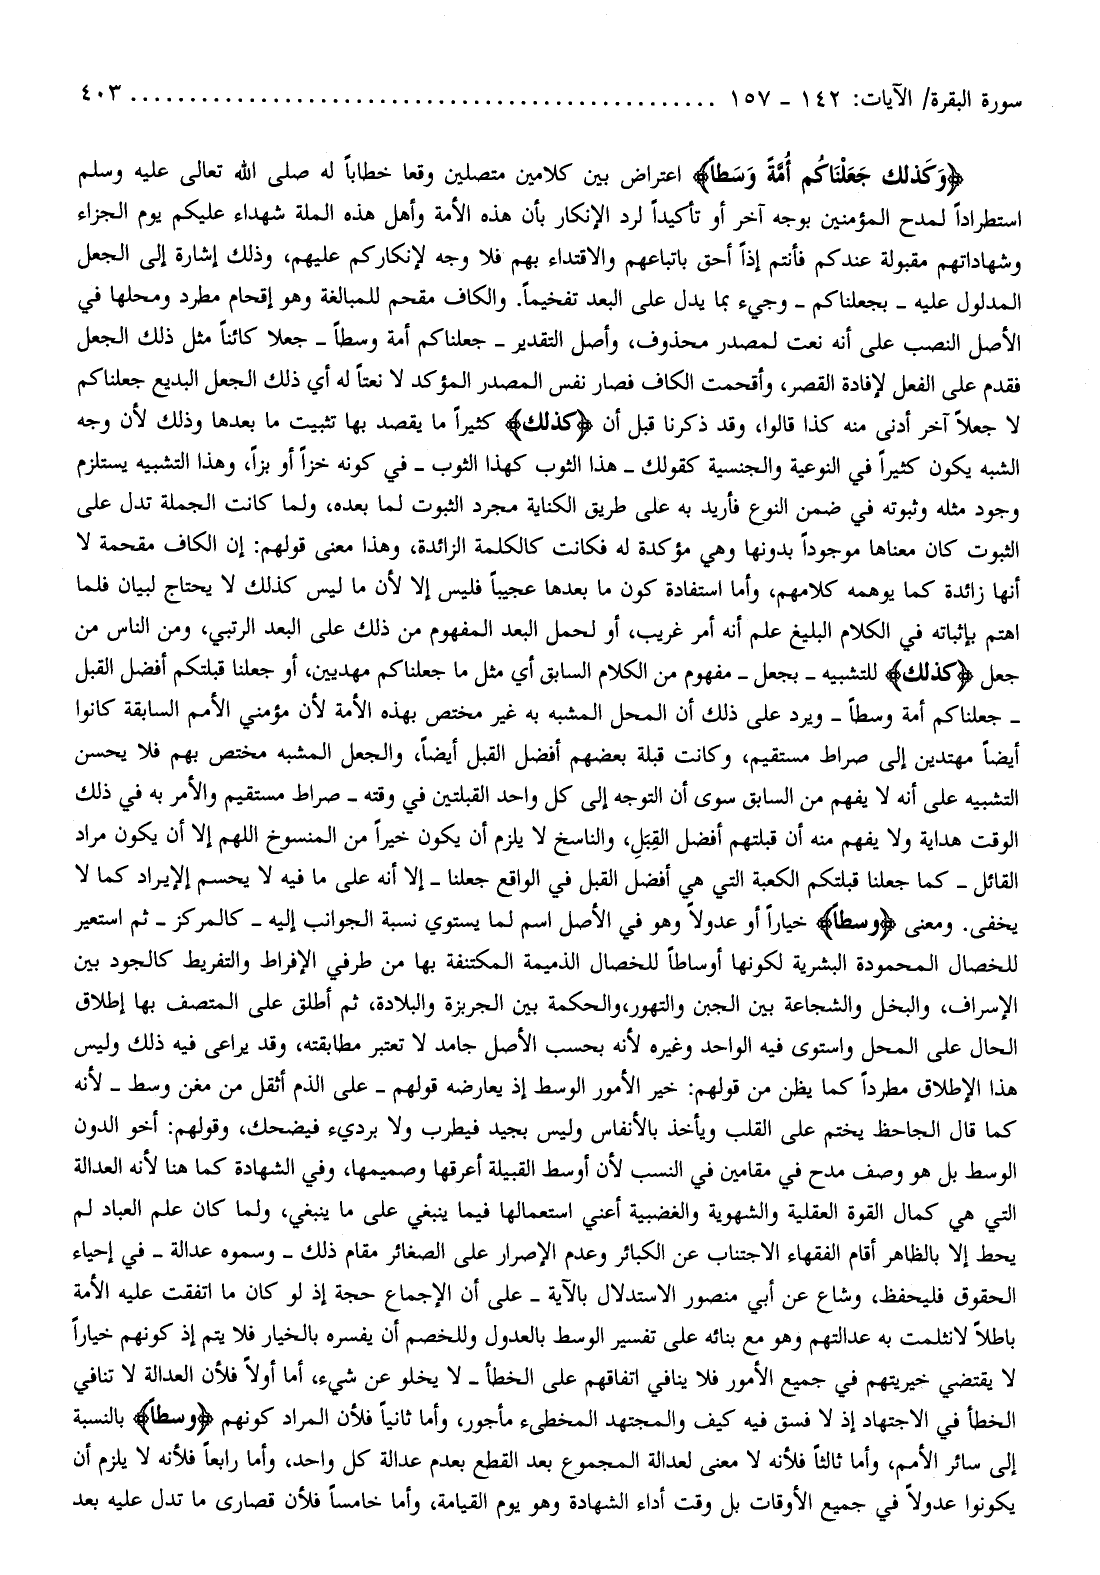 سورة البقرة/ الآيات: ١٤٢ - ١٥٧ ................................................ ٤٠٣
﴿وَكَذلك جَعَلْنَاكُم أُمَّةً وَسَطاً﴾ اعتراض بين كلامين متصلين وقعا خطاباً له صلى الله تعالى عليه وسلم
استطراداً لمدح المؤمنين بوجه آخر أو تأكيداً لرد الإنكار بأن هذه الأمة وأهل هذه الملة شهداء عليكم يوم الجزاء
وشهاداتهم مقبولة عندكم فأنتم إذاً أحق باتباعهم والاقتداء بهم فلا وجه لإنكاركم عليهم، وذلك إشارة إلى الجعل
المدلول عليه ـ بجعلناكم ـ وجيء بما يدل على البعد تفخيماً. والكاف مقحم للمبالغة وهو إقحام مطرد ومحلها في
الأصل النصب على أنه نعت لمصدر محذوف، وأصل التقدير ـ جعلناكم أمة وسطاً ـ جعلا كائناً مثل ذلك الجعل
فقدم على الفعل لإفادة القصر، وأقحمت الكاف فصار نفس المصدر المؤكد لا نعتاً له أي ذلك الجعل البديع جعلناكم
لا جعلاً آخر أدنى منه كذا قالوا، وقد ذكرنا قبل أن ﴿كذلك﴾ كثيراً ما يقصد بها تثبيت ما بعدها وذلك لأن وجه
الشبه يكون كثيراً في النوعية والجنسية كقولك ـ هذا الثوب كهذا الثوب ـ في كونه خزاً أو بزاً، وهذا التشبيه يستلزم
وجود مثله وثبوته في ضمن النوع فأريد به على طريق الكناية مجرد الثبوت لما بعده، ولما كانت الجملة تدل على
الثبوت كان معناها موجوداً بدونها وهي مؤكدة له فكانت كالكلمة الزائدة، وهذا معنى قولهم: إن الكاف مقحمة لا
أنها زائدة كما يوهمه كلامهم، وأما استفادة كون ما بعدها عجيباً فليس إلا لأن ما ليس كذلك لا يحتاج لبيان فلما
اهتم بإثباته في الكلام البليغ علم أنه أمر غريب، أو لحمل البعد المفهوم من ذلك على البعد الرتبي، ومن الناس من
جعل ﴿كذلك﴾ للتشبيه ـ بجعل ـ مفهوم من الكلام السابق أي مثل ما جعلناكم مهديين، أو جعلنا قبلتكم أفضل القبل
ـ جعلناكم أمة وسطاً ـ ويرد على ذلك أن المحل المشبه به غير مختص بهذه الأمة لأن مؤمني الأمم السابقة كانوا
أيضاً مهتدين إلى صراط مستقيم، وكانت قبلة بعضهم أفضل القبل أيضاً، والجعل المشبه مختص بهم فلا يحسن
التشبيه على أنه لا يفهم من السابق سوى أن التوجه إلى كل واحد القبلتين في وقته ـ صراط مستقيم والأمر به في ذلك
الوقت هداية ولا يفهم منه أن قبلتهم أفضل القِبَلِ، والناسخ لا يلزم أن يكون خيراً من المنسوخ اللهم إلا أن يكون مراد
القائل ـ كما جعلنا قبلتكم الكعبة التي هي أفضل القبل في الواقع جعلنا ـ إلا أنه على ما فيه لا يحسم الإيراد كما لا
يخفى. ومعنى ﴿وسطاً﴾ خياراً أو عدولاً وهو في الأصل اسم لما يستوي نسبة الجوانب إليه ـ كالمركز ـ ثم استعير
للخصال المحمودة البشرية لكونها أوساطاً للخصال الذميمة المكتنفة بها من طرفي الإفراط والتفريط كالجود بين
الإسراف، والبخل والشجاعة بين الجبن والتهور،والحكمة بين الجربزة والبلادة، ثم أطلق على المتصف بها إطلاق
الحال على المحل واستوى فيه الواحد وغيره لأنه بحسب الأصل جامد لا تعتبر مطابقته، وقد يراعى فيه ذلك وليس
هذا الإطلاق مطرداً كما يظن من قولهم: خير الأمور الوسط إذ يعارضه قولهم ـ على الذم أثقل من مغن وسط ـ لأنه
كما قال الجاحظ يختم على القلب ويأخذ بالأنفاس وليس بجيد فيطرب ولا برديء فيضحك، وقولهم: أخو الدون
الوسط بل هو وصف مدح في مقامين في النسب لأن أوسط القبيلة أعرقها وصميمها، وفي الشهادة كما هنا لأنه العدالة
التي هي كمال القوة العقلية والشهوية والغضبية أعني استعمالها فيما ينبغي على ما ينبغي، ولما كان علم العباد لم
يحط إلا بالظاهر أقام الفقهاء الاجتناب عن الكبائر وعدم الإصرار على الصغائر مقام ذلك ـ وسموه عدالة ـ في إحياء
الحقوق فليحفظ، وشاع عن أبي منصور الاستدلال بالآية ـ على أن الإجماع حجة إذ لو كان ما اتفقت عليه الأمة
باطلاً لانثلمت به عدالتهم وهو مع بنائه على تفسير الوسط بالعدول وللخصم أن يفسره بالخيار فلا يتم إذ كونهم خياراً
لا يقتضي خيريتهم في جميع الأمور فلا ينافي اتفاقهم على الخطأ ـ لا يخلو عن شيء، أما أولاً فلأن العدالة لا تنافي
الخطأ في الاجتهاد إذ لا فسق فيه كيف والمجتهد المخطىء مأجور، وأما ثانياً فلأن المراد كونهم ﴿وسطاً﴾ بالنسبة
إلى سائر الأمم، وأما ثالثاً فلأنه لا معنى لعدالة المجموع بعد القطع بعدم عدالة كل واحد، وأما رابعاً فلأنه لا يلزم أن
يكونوا عدولاً في جميع الأوقات بل وقت أداء الشهادة وهو يوم القيامة، وأما خامساً فلأن قصارى ما تدل عليه بعد